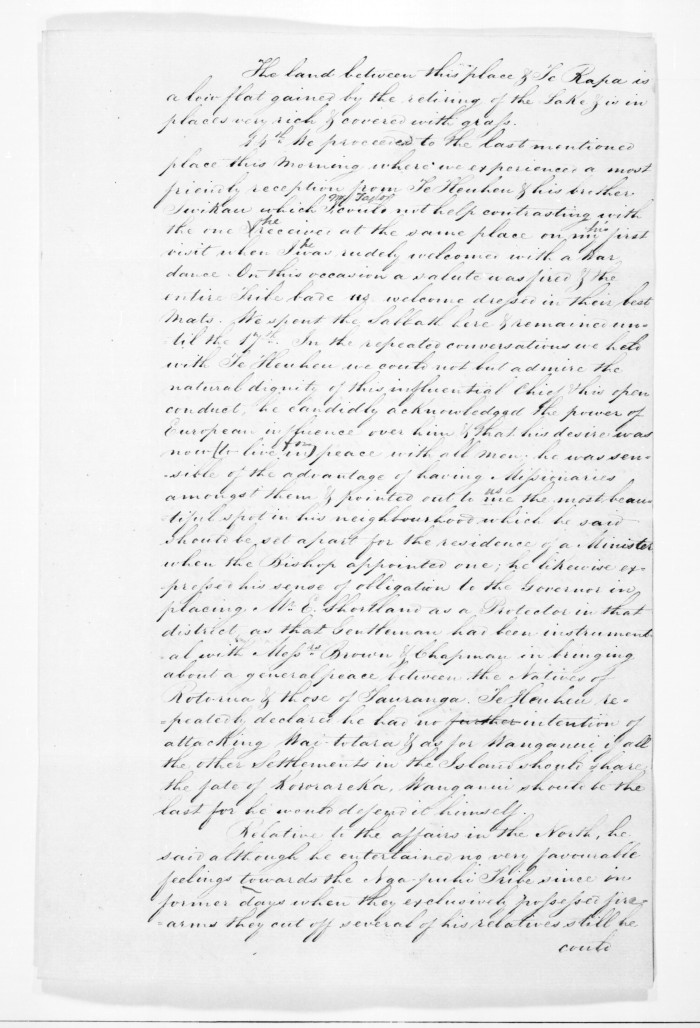 The land between this place & Te Rapa is
a low flat gained by the retiring of the Lake & is in
places very rich & covered with grass.
We proceeded to the last mentioned
place this Morning where we experienced a most
friendly reception from Te Heuheu & his brother
Iwikau which I could not help contrasting with
Mr Taylor
the one he received at the same place on my his first
visit when I he was rudely welcomed with a War
dance. On this occasion a salute was fired & the
entire Tribe bade us welcome dressed in their best
Mats. We spent the Sabbath here & remained un-
-til the 17th. In the repeated conversations we held
with Te Heuheu we could not but admire the
natural dignity of this influential Chief & his open
conduct, he candidly acknowledged the power of
European influence over him & that his desire was
now (to live in) for peace with all men; he was sen-
-sible of the advantage of having Missionaries
amongst them & pointed out to me us the most beau-
-tiful spot in his neighbourhood which he said
should be set apart for the residence of a Minister
when the Bishop appointed one; he likewise ex-
-pressed his sense of obligation to the Governor in
placing Mr. E. Shortland as a Protector in that
district, as that Gentleman had been instrument-
-al with Messrs Brown & Chapman in bringing
about a general peace between the Natives of
Rotorua & those of Tauranga. Te Heuheu re-
-peatedly declared he had no further intention of
attacking Wai-totara & as for Wanganui if all
the other Settlements in the Island should share
the fate of Kororareka, Wanganui should be the
last for he would defend it himself.
Relative to the affairs in the North, he
said although he entertained no very favourable
feelings towards the Nga-puhi Tribe since in
former days when they exclusively possessed fire-
-arms they cut off several of his relatives still he
could